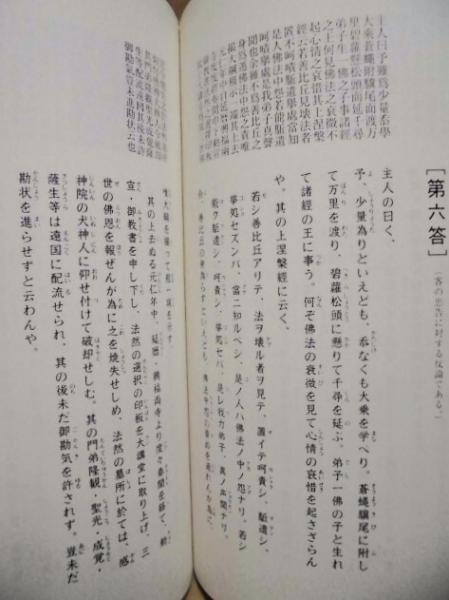 主人曰予雖為少量忝學
大乘蒼蠅附驥尾而渡万
里碧蘿懸松頭而延千尋
弟子生一佛之子事諸經
之王何見佛法之衰微不
起心情之哀惜其上涅槃
經云若善比丘見壞法者
置不呵嘖駈遣舉處當知
是人佛法中怨若能駈遣
呵嘖舉處是我弟子真聲
聞也余雖不為善比丘之
身為遁佛法中怨之責唯
撮大綱粗示一端其上去
元仁年中
御勘気豈未進勘状云也
[第六答](客の忠告に対する反論である。)
主人の曰く、
予、少量為りといえども、忝なくも大乗を学べり。蒼蠅驥尾に附し
て万里を渡り、碧蘿松頭に懸りて千尋を延ぶ。弟子一佛の子と生れ
て諸経の王に事う。何ぞ佛法の衰微を見て心情の哀惜を起さざらん
や。其の上涅槃経に云く、
若シ善比丘アリテ、法ヲ壊ル者ヲ見テ、置イテ呵責シ、駈遣シ、
挙処セズンバ、当ニ知ルベシ、是ノ人ハ佛法ノ中ノ怨ナリ。若シ
能ク駈遣シ、呵責シ、挙処セバ、是レ我ガ弟子、真ノ声聞ナリ。
其の上去ぬる元仁年中、延暦・興福両寺より度々奏聞を経て、勅
宣・御教書を申し下し、法然の選択の印板を大講堂に取り上げ、三
世の佛恩を報ぜんが為に之を焼失せしめ、法然の墓所に於ては、感
神院の犬神人に仰せ付けて破却せしむ。其の門弟隆観・聖光・成覚・
薩生等は遠国に配流せられ、其の後未だ御勘気を許されず。豈未だ
勘状を進らせずと云わんや。